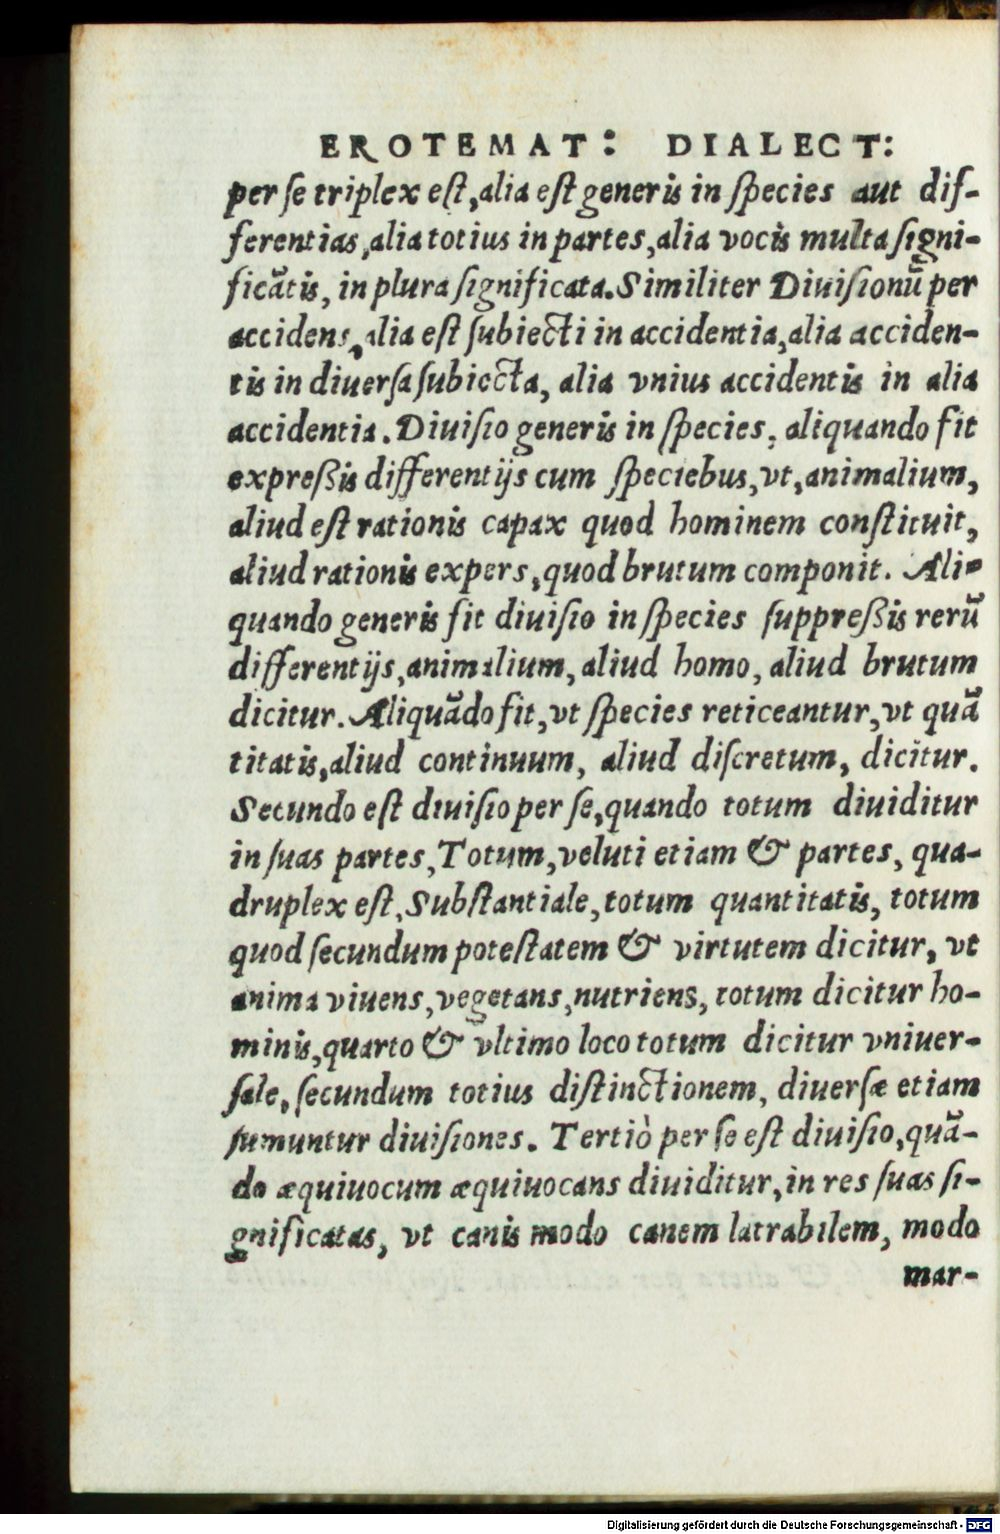 EROTEMAT: DIALECT:
per ſe triplex eſt, alia eſt generis in ſpecies aut dif-
ferentias, alia totius in partes, alia vocis multa ſigni-
ficātis, in plura ſignificata. Similiter Diuiſionū per
accidens, alia eſt ſubiecti in accidentia, alia acciden-
tis in diuerſa ſubiecta, alia vnius accidentis in alia
accidentia. Diuiſio generis in ſpecies, aliquando fit
expreßis differentijs cum ſpeciebus, vt, animalium,
aliud eſt rationis capax quod hominem conſtituit,
aliud rationis expers, quod brutum componit. Ali-
quando generis fit diuiſio in ſpecies ſuppreßis rerū
differentijs, animalium, aliud homo, aliud brutum
dicitur. Aliquādo fit, vt ſpecies reticeantur, vt quā
titatis, aliud continuum, aliud diſcretum, dicitur.
Secundo eſt diuiſio per ſe, quando totum diuiditur
in ſuas partes, Totum, veluti etiam & partes, qua-
druplex eſt, Subſtantiale, totum quantitatis, totum
quod ſecundum poteſtatem & virtutem dicitur, vt
anima viuens, vegetans, nutriens, totum dicitur ho-
minis, quarto & vltimo loco totum dicitur vniuer-
ſale, ſecundum totius diſtinctionem, diuerſæ etiam
ſumuntur diuiſiones. Tertiò per ſe eſt diuiſio, quā-
do æquiuocum æquiuocans diuiditur, in res ſuas ſi-
gnificatas, vt canis modo canem latrabilem, modo
mar-
Digitalisierung gefördert durch die Deutsche Forschungsgemeinschaft - DFG